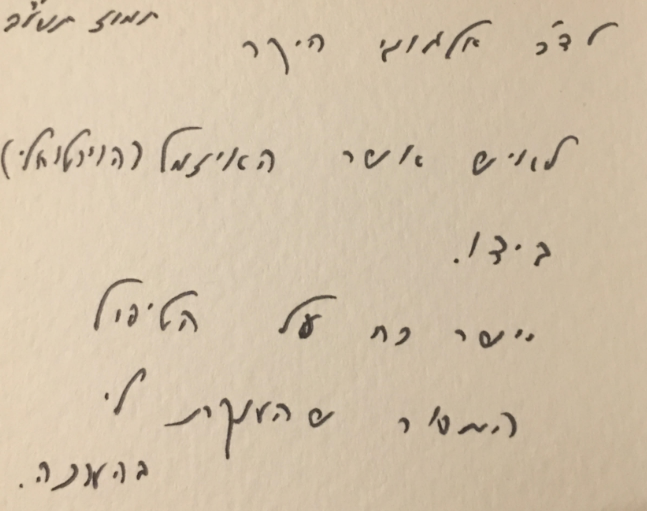 תמוז תשע"ב
לד"ר אלגוני היקר
לאיש אשר האיזמל (הוירטואלי)
בידו.
יישר כח על הטיפול
המסור שהענקת לי
בהערכה.